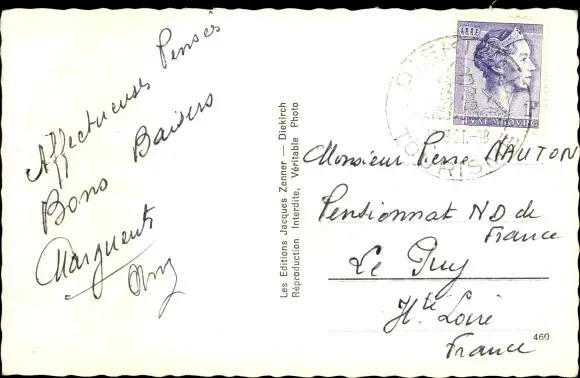 Affectueuses Pensés
Bons Baisers
Les Editions Jacques Zenner — Diekirch
Réproduction Interdite, Véritable Photo
LUXEMBOURG
TOURIS
Monsieur Pierre
Pensionnat ND de
France
Le Puy
Hte Loire
France
460